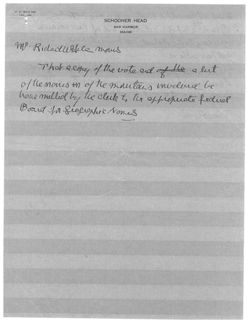 SCHOONER HEAD
BAR HARBOR
MAINE
That a copy of the vote and of the a list
of the names of the mountains involved be
transmitted by the clerk to the appropriate Federal
Board for Geographic Names